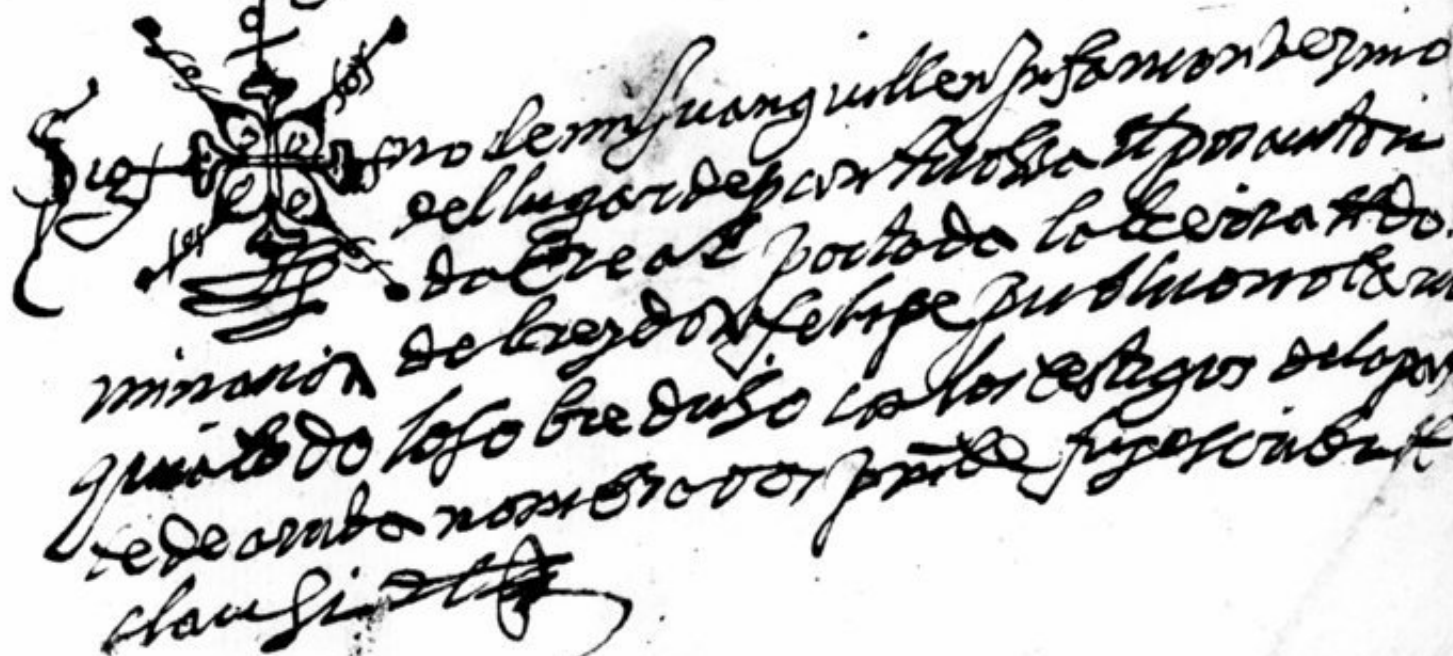 Sig no de mi Juan guillen Infancon vezino
del lugar de et por autori
dat real por toda la tierra et do
minacion del rey don felipe publico notario
qui a todo lo sobre dicho con los testigos de la par
te de arriba nombrados pnte fuy escriui et
clausi